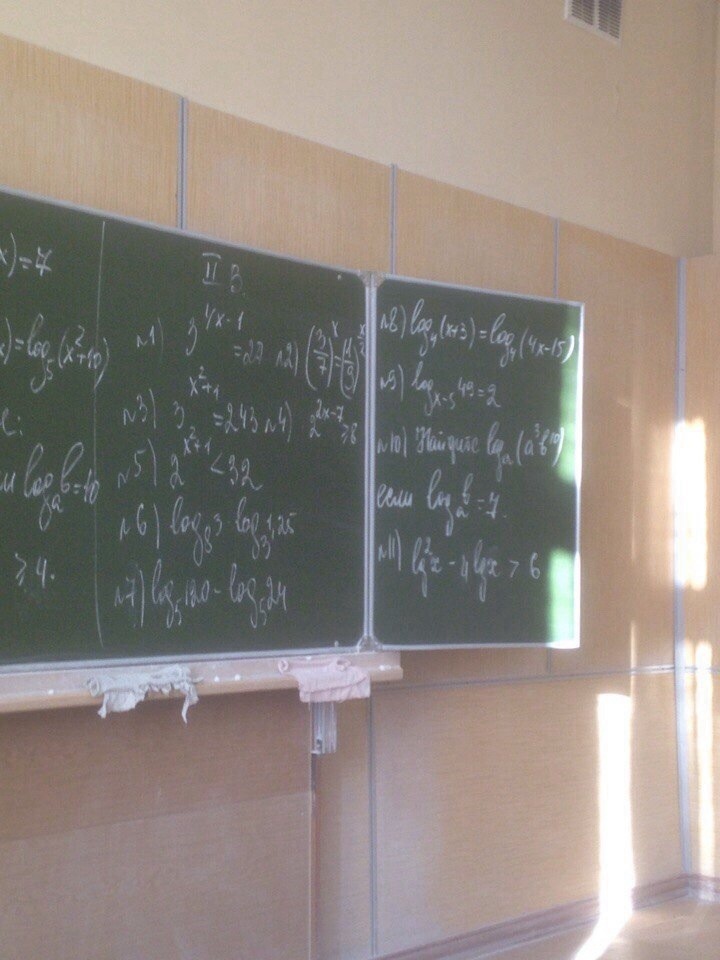 x)=7
x)=log₅(x²+10)
е:
ли logₐb=10
≥4.
II В.
n1) 3^(4x-1)=27 n2) (3/7)^x=
n3) 3^(x²+1)=243 n4) 2^(2x-7)≥8
n5) 2^(x²+1)<32
n6) log₈3 · log₃1,25
n7) log₅120 - log₅24
n8) log₄(x+3)=log₄(4x-15)
n9) logₓ₋₅49=2
n10) Найдите logₐ(a³b¹⁰)
если logₐb=7.
n11) lg²x - 4lgx > 6